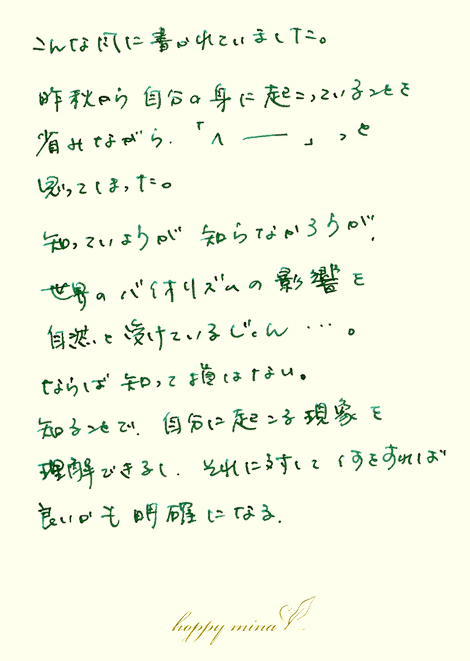 こんな風に書かれていました。
昨秋から自分の身に起こっていることを
省みながら、「へ ── 」っと
思ってしまった。
知っていようが 知らなかろうが、
世界のバイオリズムの影響を
自然と受けているじゃん …。
ならば 知って損はない。
知ることで、自分に起こる現象を
理解できるし、それに対して何をすれば
良いかも明確になる。
happy mina